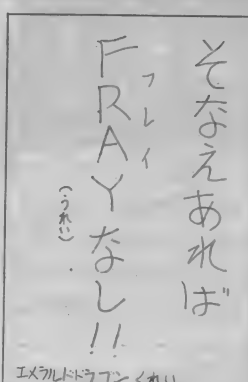 そなえあれば
FRAYなし!!
フレイ
(うれい)
エメラルドドラゴンくれい